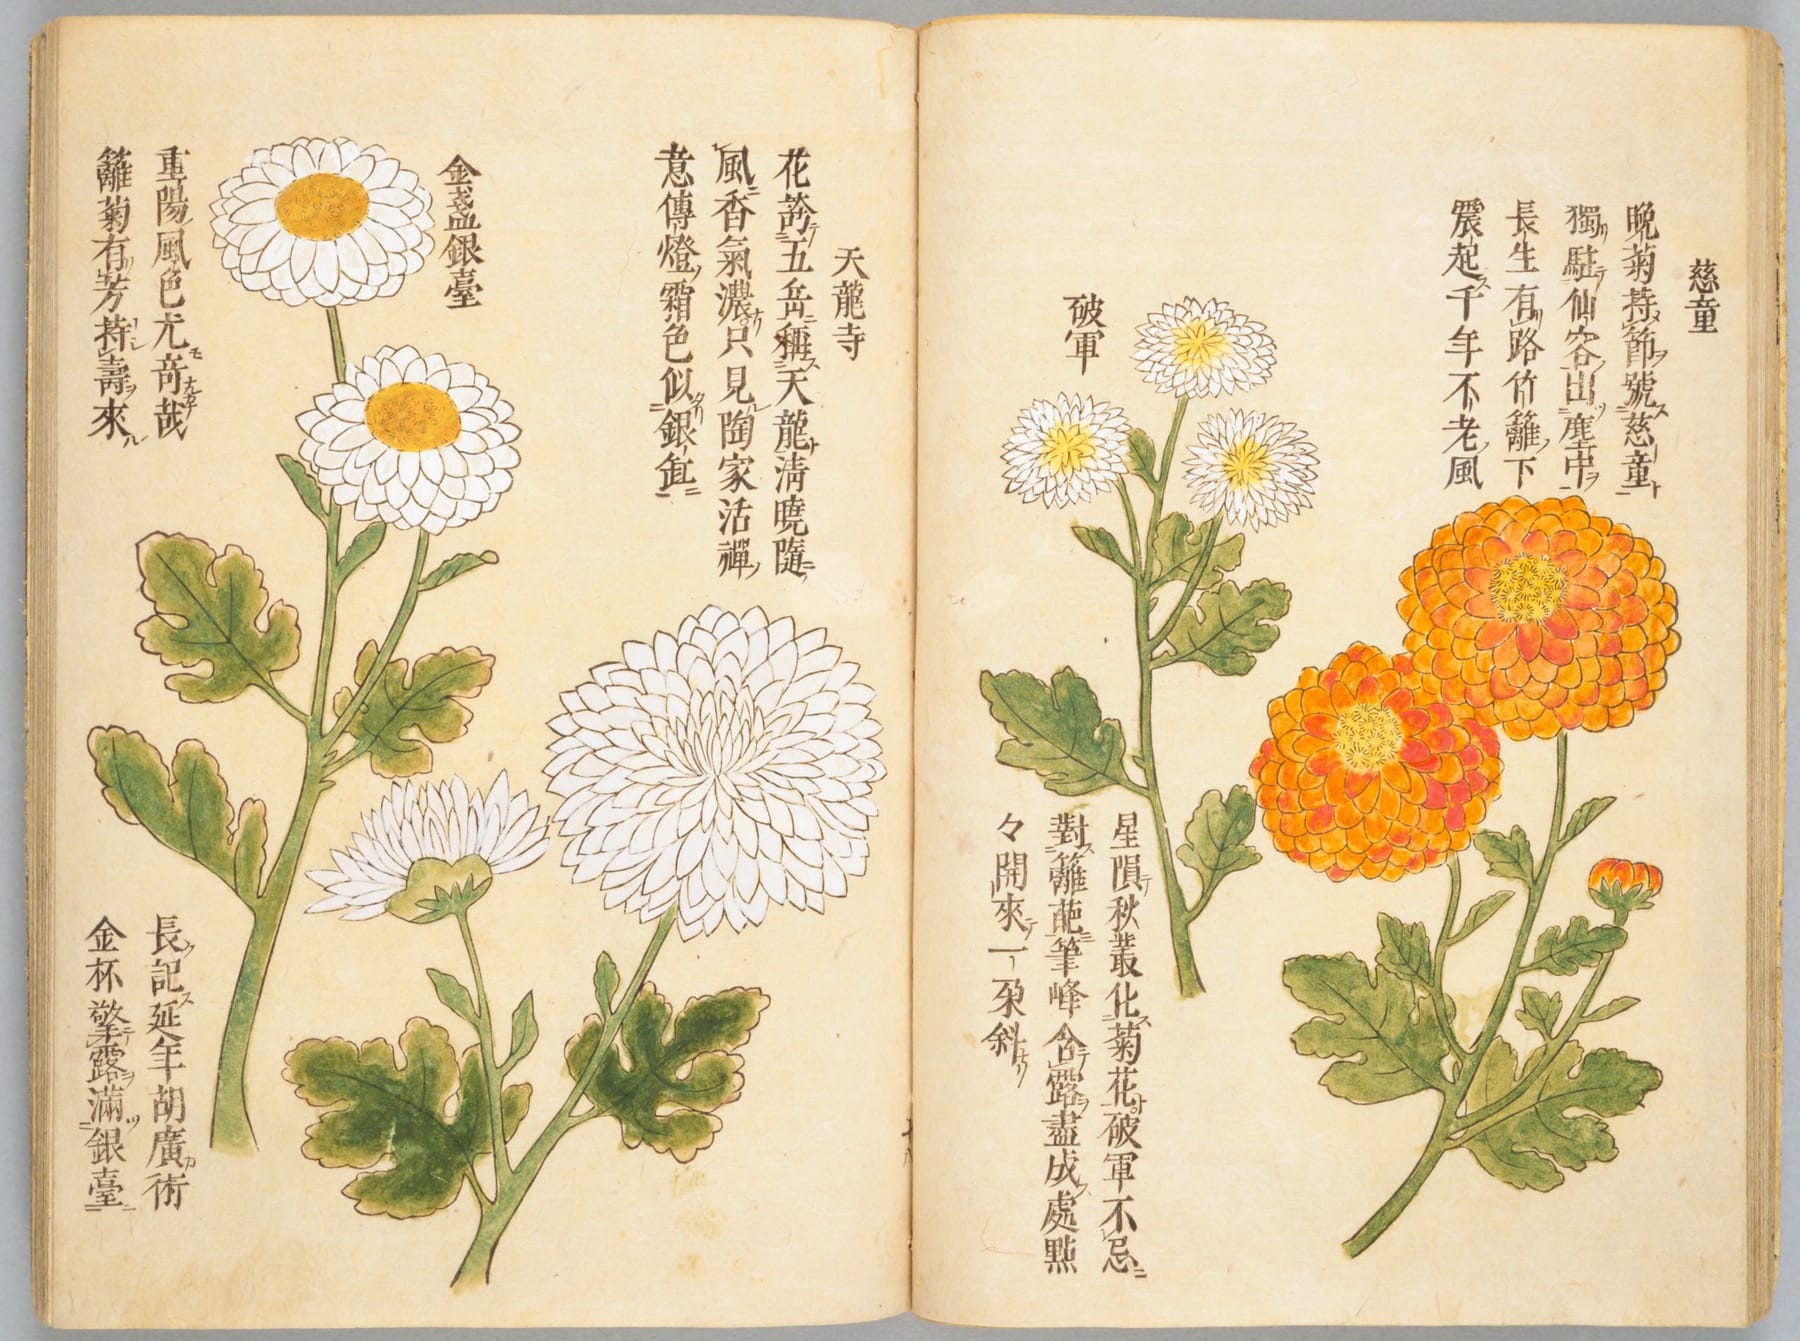 慈童
晩菊持節號慈童
獨駐仙容出塵中
長生有路竹籬下
震起千年不老風
破軍
星隕秋叢化菊花破軍不忌
對籬葩筆峰含露盡成處點
々開來一朶斜
天龍寺
花誇五岳稱天龍清曉隨
風香氣濃只見陶家活禪
意傳燈霜色似銀缸
金盞銀臺
重陽風色尤竒哉
籬菊有芳持壽來
長記延年胡廣術
金杯擎露滿銀臺